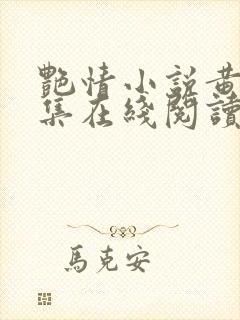 艷情小說黃
集在綫閱讀
馬克安